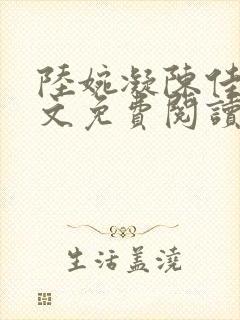 陸婉凝陳佳
文免費閱讀
生活盖澆